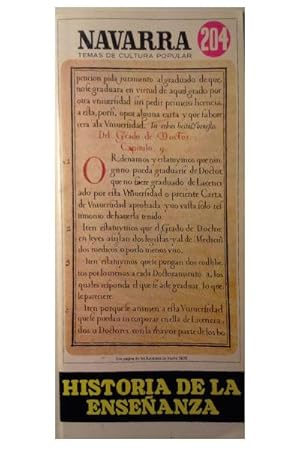 NAVARRA
204
TEMAS DE CULTURA POPULAR
peticion pida juramento al graduado de que,
no se graduara en virtud de aquel grado por
otra vniuersidad sin pedir primero licencia,
a esta, por si, o por alguna carta y que fabore
sera ala Vniuersidad.
Del Grado de Doctor.
Capitulo 9.
Ordenamos y estatuymos que nin
guno pueda graduarse de Doctor
que no fuere graduado de Licencia
do por esta Vniuersidad o presente Carta
de Vniuersidad aprobada y no vasta solo tes
timonio de hauerla tenido.
Iten estatuymos que el Grado de Doctor
en leyes asistan dos legistas y al de Medicina
dos medicos o por lo menos vno.
Iten estatuymos que se pongan dos rodillas
por lo menos a cada Doctoramiento a los
quales responda el que se a de graduar lo que
le pareciere
Iten porque se animen a esta Vniuersidad
que se puedan incorporar en ella de Licencia
dos o Doctores con la mayor parte de los bo
HISTORIA DE LA
ENSEÑANZA